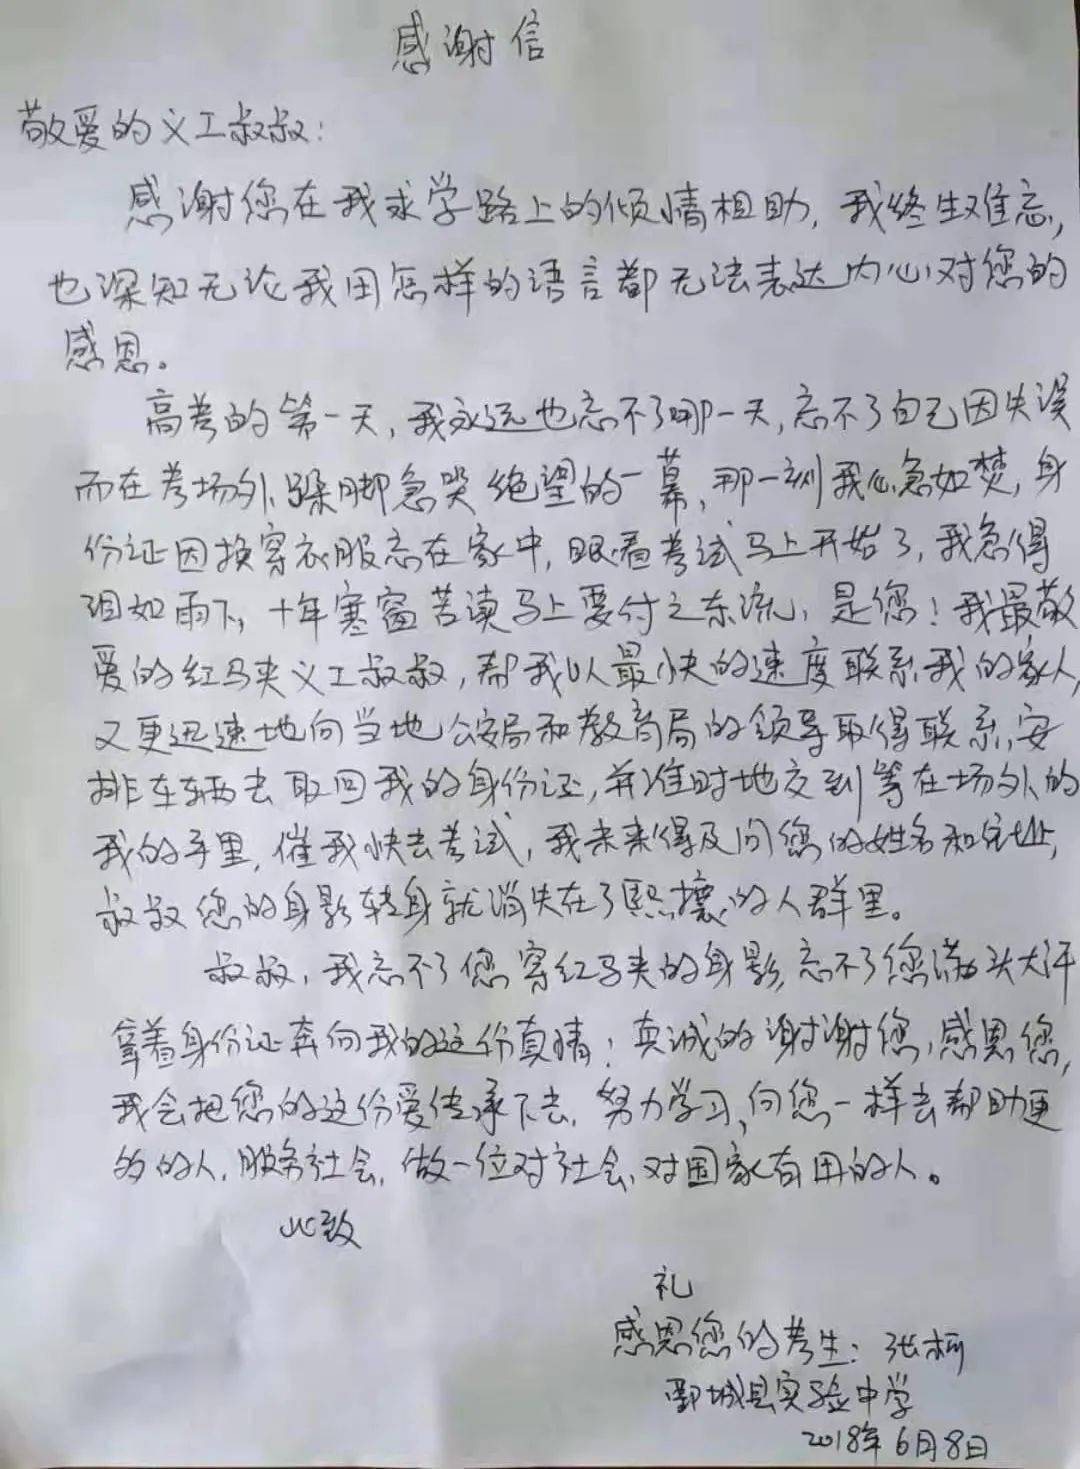 感谢信
敬爱的义工叔叔：
感谢您在我求学路上的倾情相助，我终生难忘，
也深知无论我用怎样的语言都无法表达内心对您的
感恩。
高考的第一天，我永远也忘不了那一天，忘不了自己因失误
而在考场外跺脚急哭绝望的一幕，那一刻我心急如焚，身
份证因换穿衣服忘在家中，眼看考试马上开始了，我急得
泪如雨下，十年寒窗苦读马上要付之东流，是您！我最敬
爱的红马夹义工叔叔，帮我以最快的速度联系我的家人，
又更迅速地向当地公安局和教育局的领导取得联系，安
排车辆去取回我的身份证，并准时地交到等在场外的
我的手里，催我快去考试，我未来得及问您的姓名和住址，
叔叔您的身影转身就消失在了熙攘的人群里。
叔叔，我忘不了您穿红马夹的身影，忘不了您满头大汗
拿着身份证奔向我的这份真情！真诚的谢谢您，感恩您，
我会把您的这份爱传承下去，努力学习，向您一样去帮助更
多的人，服务社会，做一位对社会、对国家有用的人。
此致
礼
感恩您的考生：张柯
鄄城县实验中学
2018年6月8日